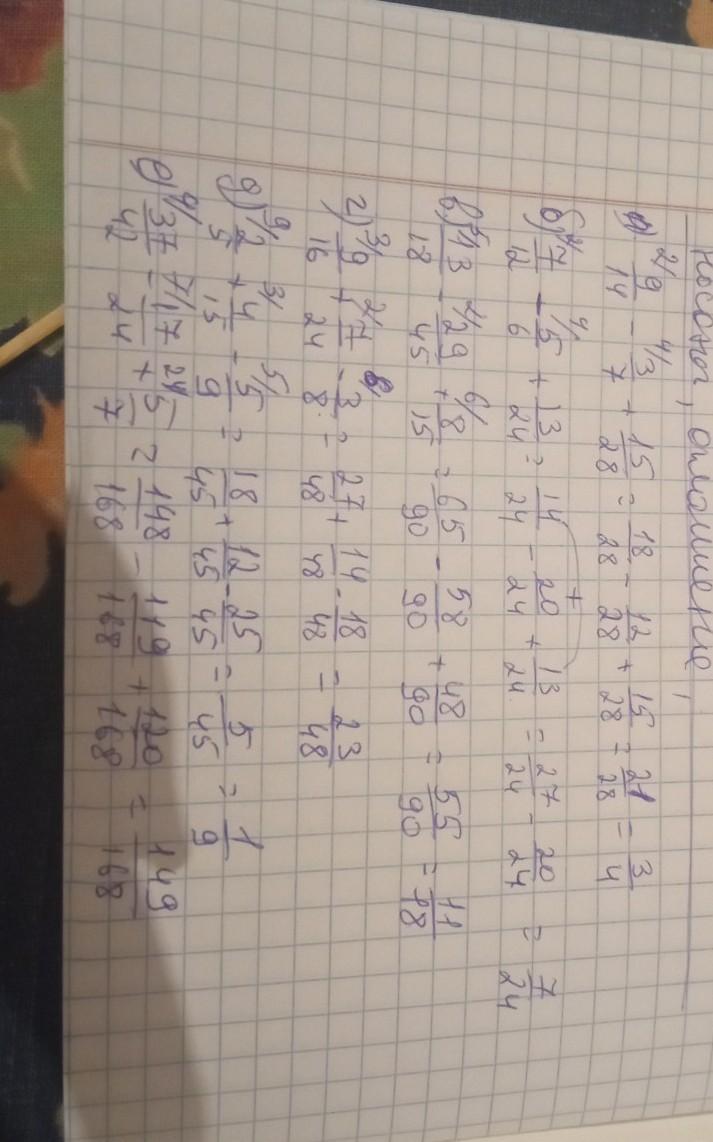 а) 2/ 9/14 - 4/ 3/7 + 15/28 = 18/28 - 12/28 + 15/28 = 21/28 = 3/4
б) 2/ 7/12 - 4/ 5/6 + 13/24 = 14/24 - 20/24 + 13/24 = 27/24 - 20/24 = 7/24
+
в) 5/ 13/18 - 2/ 29/45 + 6/ 8/15 = 65/90 - 58/90 + 48/90 = 55/90 = 11/18
г) 3/ 9/16 + 2/ 7/24 - 6/ 3/8 = 27/48 + 14/48 - 18/48 = 23/48
д) 9/ 2/5 + 3/ 4/15 - 5/ 5/9 = 18/45 + 12/45 - 25/45 = 5/45 = 1/9
е) 4/ 37/42 - 7/ 17/24 + 24/ 5/7 = 148/168 - 119/168 + 120/168 = 149/168